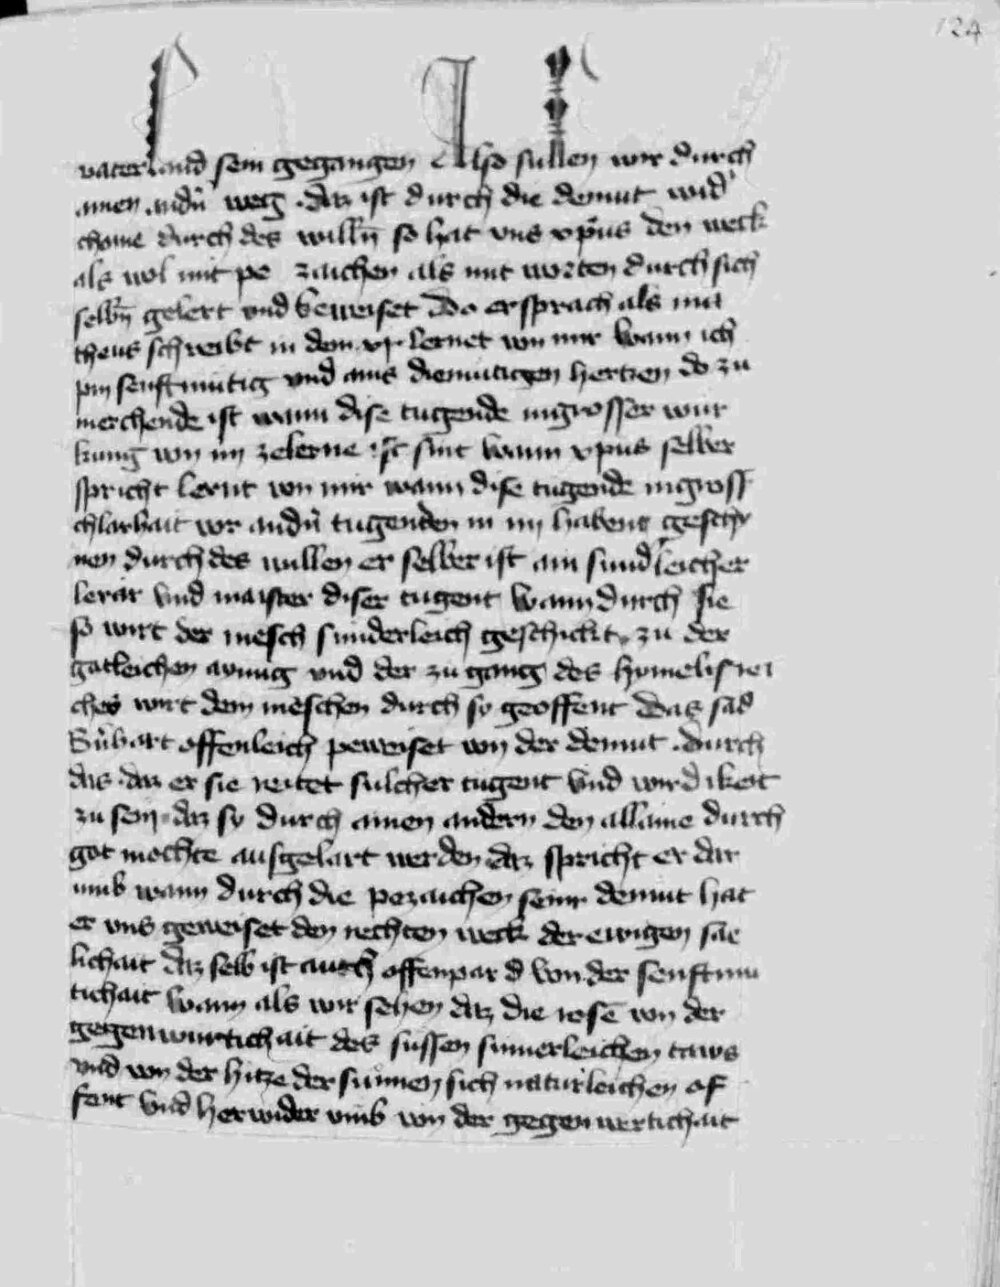 124
vaterland sein gegangen Also sullen wir durch
ainen andn̄ weg daz ist durch die demut wid'
chome durch des willn̄ so hat vns xp̄us den weck
als wol mit pe zaichen als mit worten durch sich
selbn̄ gelert vnd beweiset Do er sprach als mа
theus schreibt in dem xj. lernet von mir wann ich
pin senftmutig vnd ains diemutigen hertzen do zu
merchende ist wann dise tugende in grosser wur
kung von im zelerne sint wann xpus selber
spricht lernt von mir wann dise tugende in gross
chlarhait vor andn̄ tugenden in im habent geschy
nen durch des willen er selber ist ain sunderleicher
lerar vnd maister diser tugent wann durch sie
so wirt der mēsch sunderleich geschickt zu der
gotleichen aynung vnd der zu gang des hymelisrei
ches wirt dem mēschen durch sy geoffent Das sand
offenleich peweiset von der demut durch
das daz er sie sulcher tugent vnd wirdikeit
zu sein daz sy durch ainen andern den allaine durch
got mochte ausgelart werden daz spricht er dar
umb wann durch die pezaichen seinr demut hat
er vns geweiset den rechten weck der ewigen sae
lichait daz selb ist auch offenpar von der senftmu
tichait wann als wir sehen daz die rosē von der
gegenwurtichait des sussen sumerleichen taws
vnd von der hitze der sunnen sich naturleichen of
fent vnd herwider vmb von der gegenwertichait